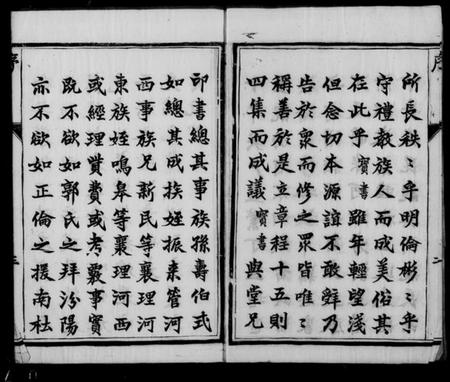 序
所長秩〻乎明倫彬〻乎
守禮教族人而成美俗其
在此乎寶書雖年輕望淺
但念切本源誼不敢辭乃
告於衆而修之眾皆唯〻
稱善於是立章程十五則
四集而成議寶書與堂兄
二
印書總其事族孫壽伯式
如總其成族姪振東管河
西事族兄新民等襄理河
東族姪鳴皋等襄理河西
或經理貲費或考覈事實
既不欲如郭氏之拜汾陽
亦不欲如正倫之援南杜
序
三